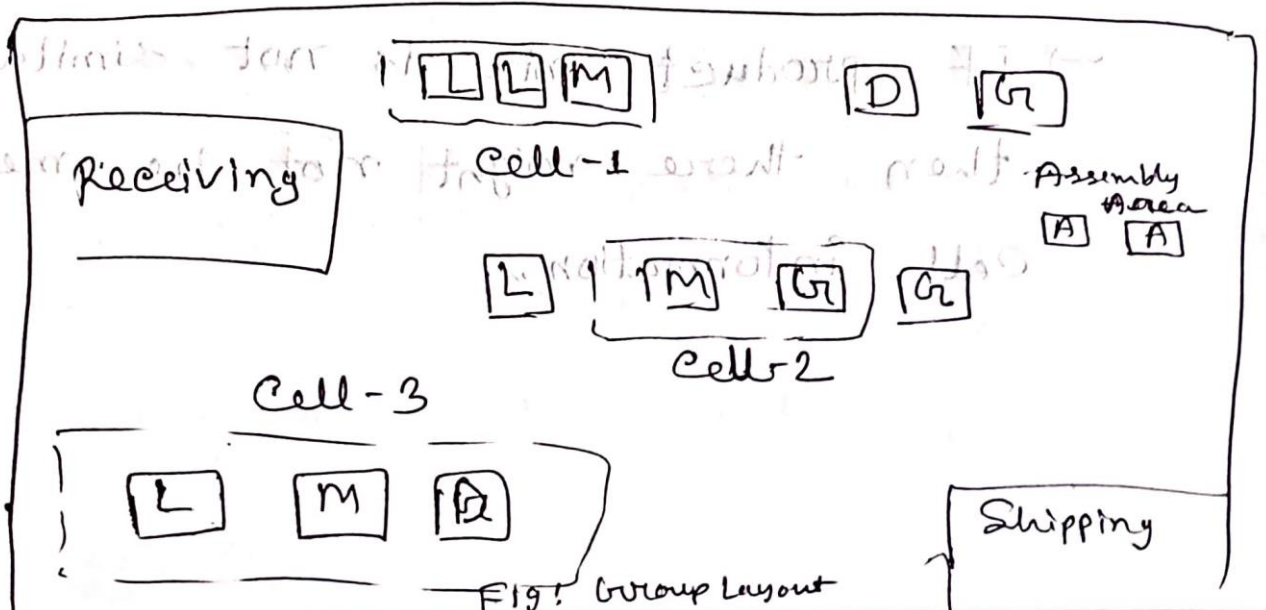 L L M
D G
Receiving
Cell-1
Assembly
Area
A A
L M G G
Cell-2
Cell-3
L M
Shipping
Fig: Group Layout